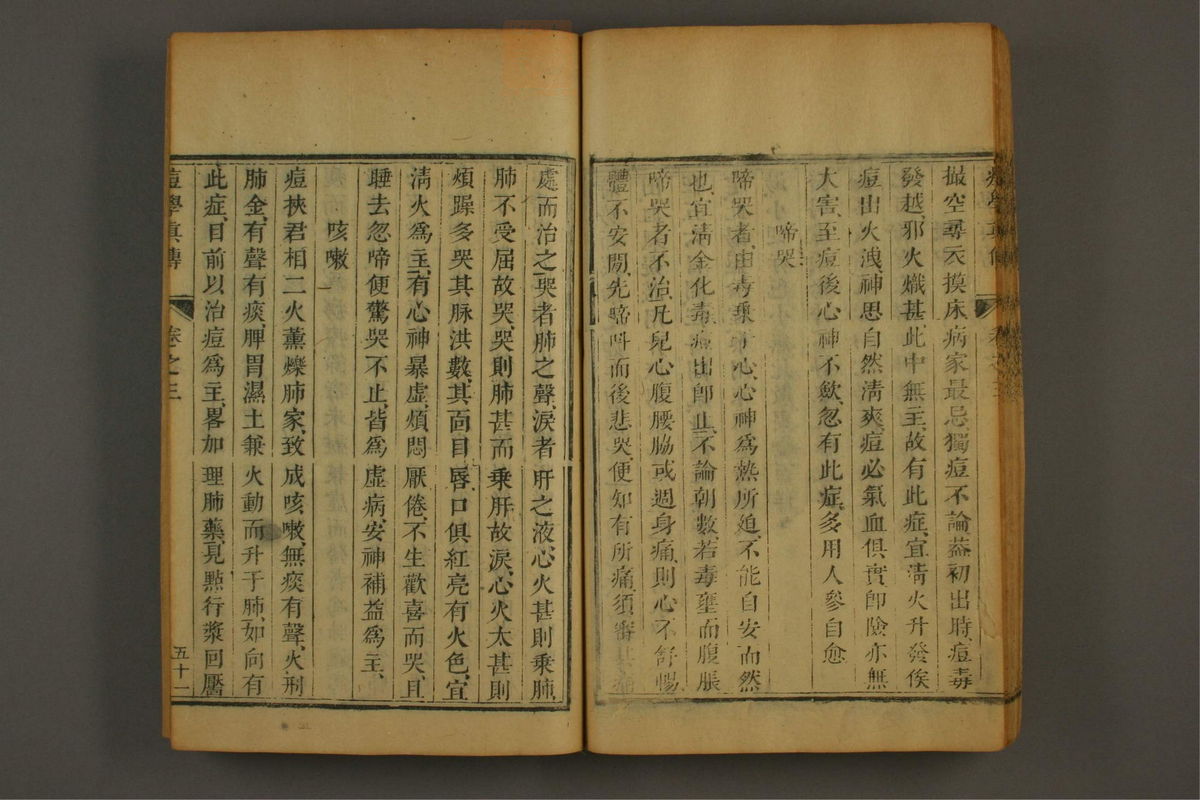 撮空尋衣摸床病家最忌獨痘不論蒸初出時痘毒
發越邪火熾甚此中無主故有此症宜淸火升發俟
痘出火洩神思自然淸爽痘必氣血俱實卽險亦無
大害至痘後心神不歛忽有此症多用人參自愈
啼哭
啼哭者由毒乗于心心神爲熱所廹不能自安而然
也宜淸金化毒痘出卽止不論朝數若毒壅而腹脹
啼哭者不治凡兒心腹腰脇或週身痛則心不舒暢
體不安閒先啼呌而後悲哭便知有所痛須審其痛
處而治之哭者肺之聲淚者肝之液心火甚則乗肺
肺不受屈故哭哭則肺甚而乗肝故淚心火太甚則
煩躁多哭其脉洪數其面目唇口俱紅亮有火色宜
淸火爲主有心神暴虛煩悶厭倦不生歡喜而哭且
睡去忽啼便驚哭不止皆爲虛病安神補益爲主
咳嗽
痘挾君相二火薰爍肺家致成咳嗽無痰有聲火刑
肺金有聲有痰脾胃濕土兼火動而升于肺如向有
此症目前以治痘爲主畧加理肺藥見點行漿囘靨
痘學眞傳 卷之三 五十一